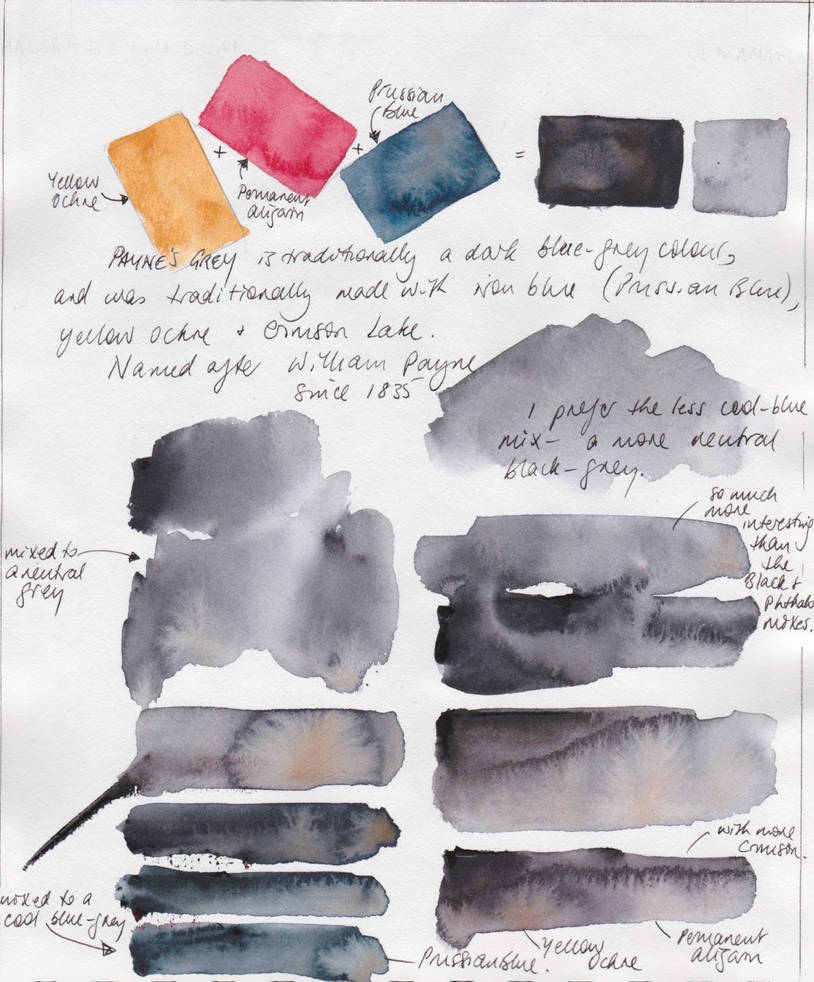 Prussian
Blue
+
+
=
Yellow
Ochre
Permanent
alizarin
PAYNE'S GREY is traditionally a dark blue-grey colour,
and was traditionally made with iron blue (Prussian Blue),
yellow ochre + Crimson Lake.
Named after William Payne
since 1835
I prefer the less cool-blue
mix- a more neutral
black-grey.
so much
more
interesting
than
the
Black &
Phthalo
mixes.
mixed to
a neutral
grey
with more
Crimson.
mixed to a
cool blue-grey
Prussian Blue.
Yellow
Ochre
Permanent
alizarin